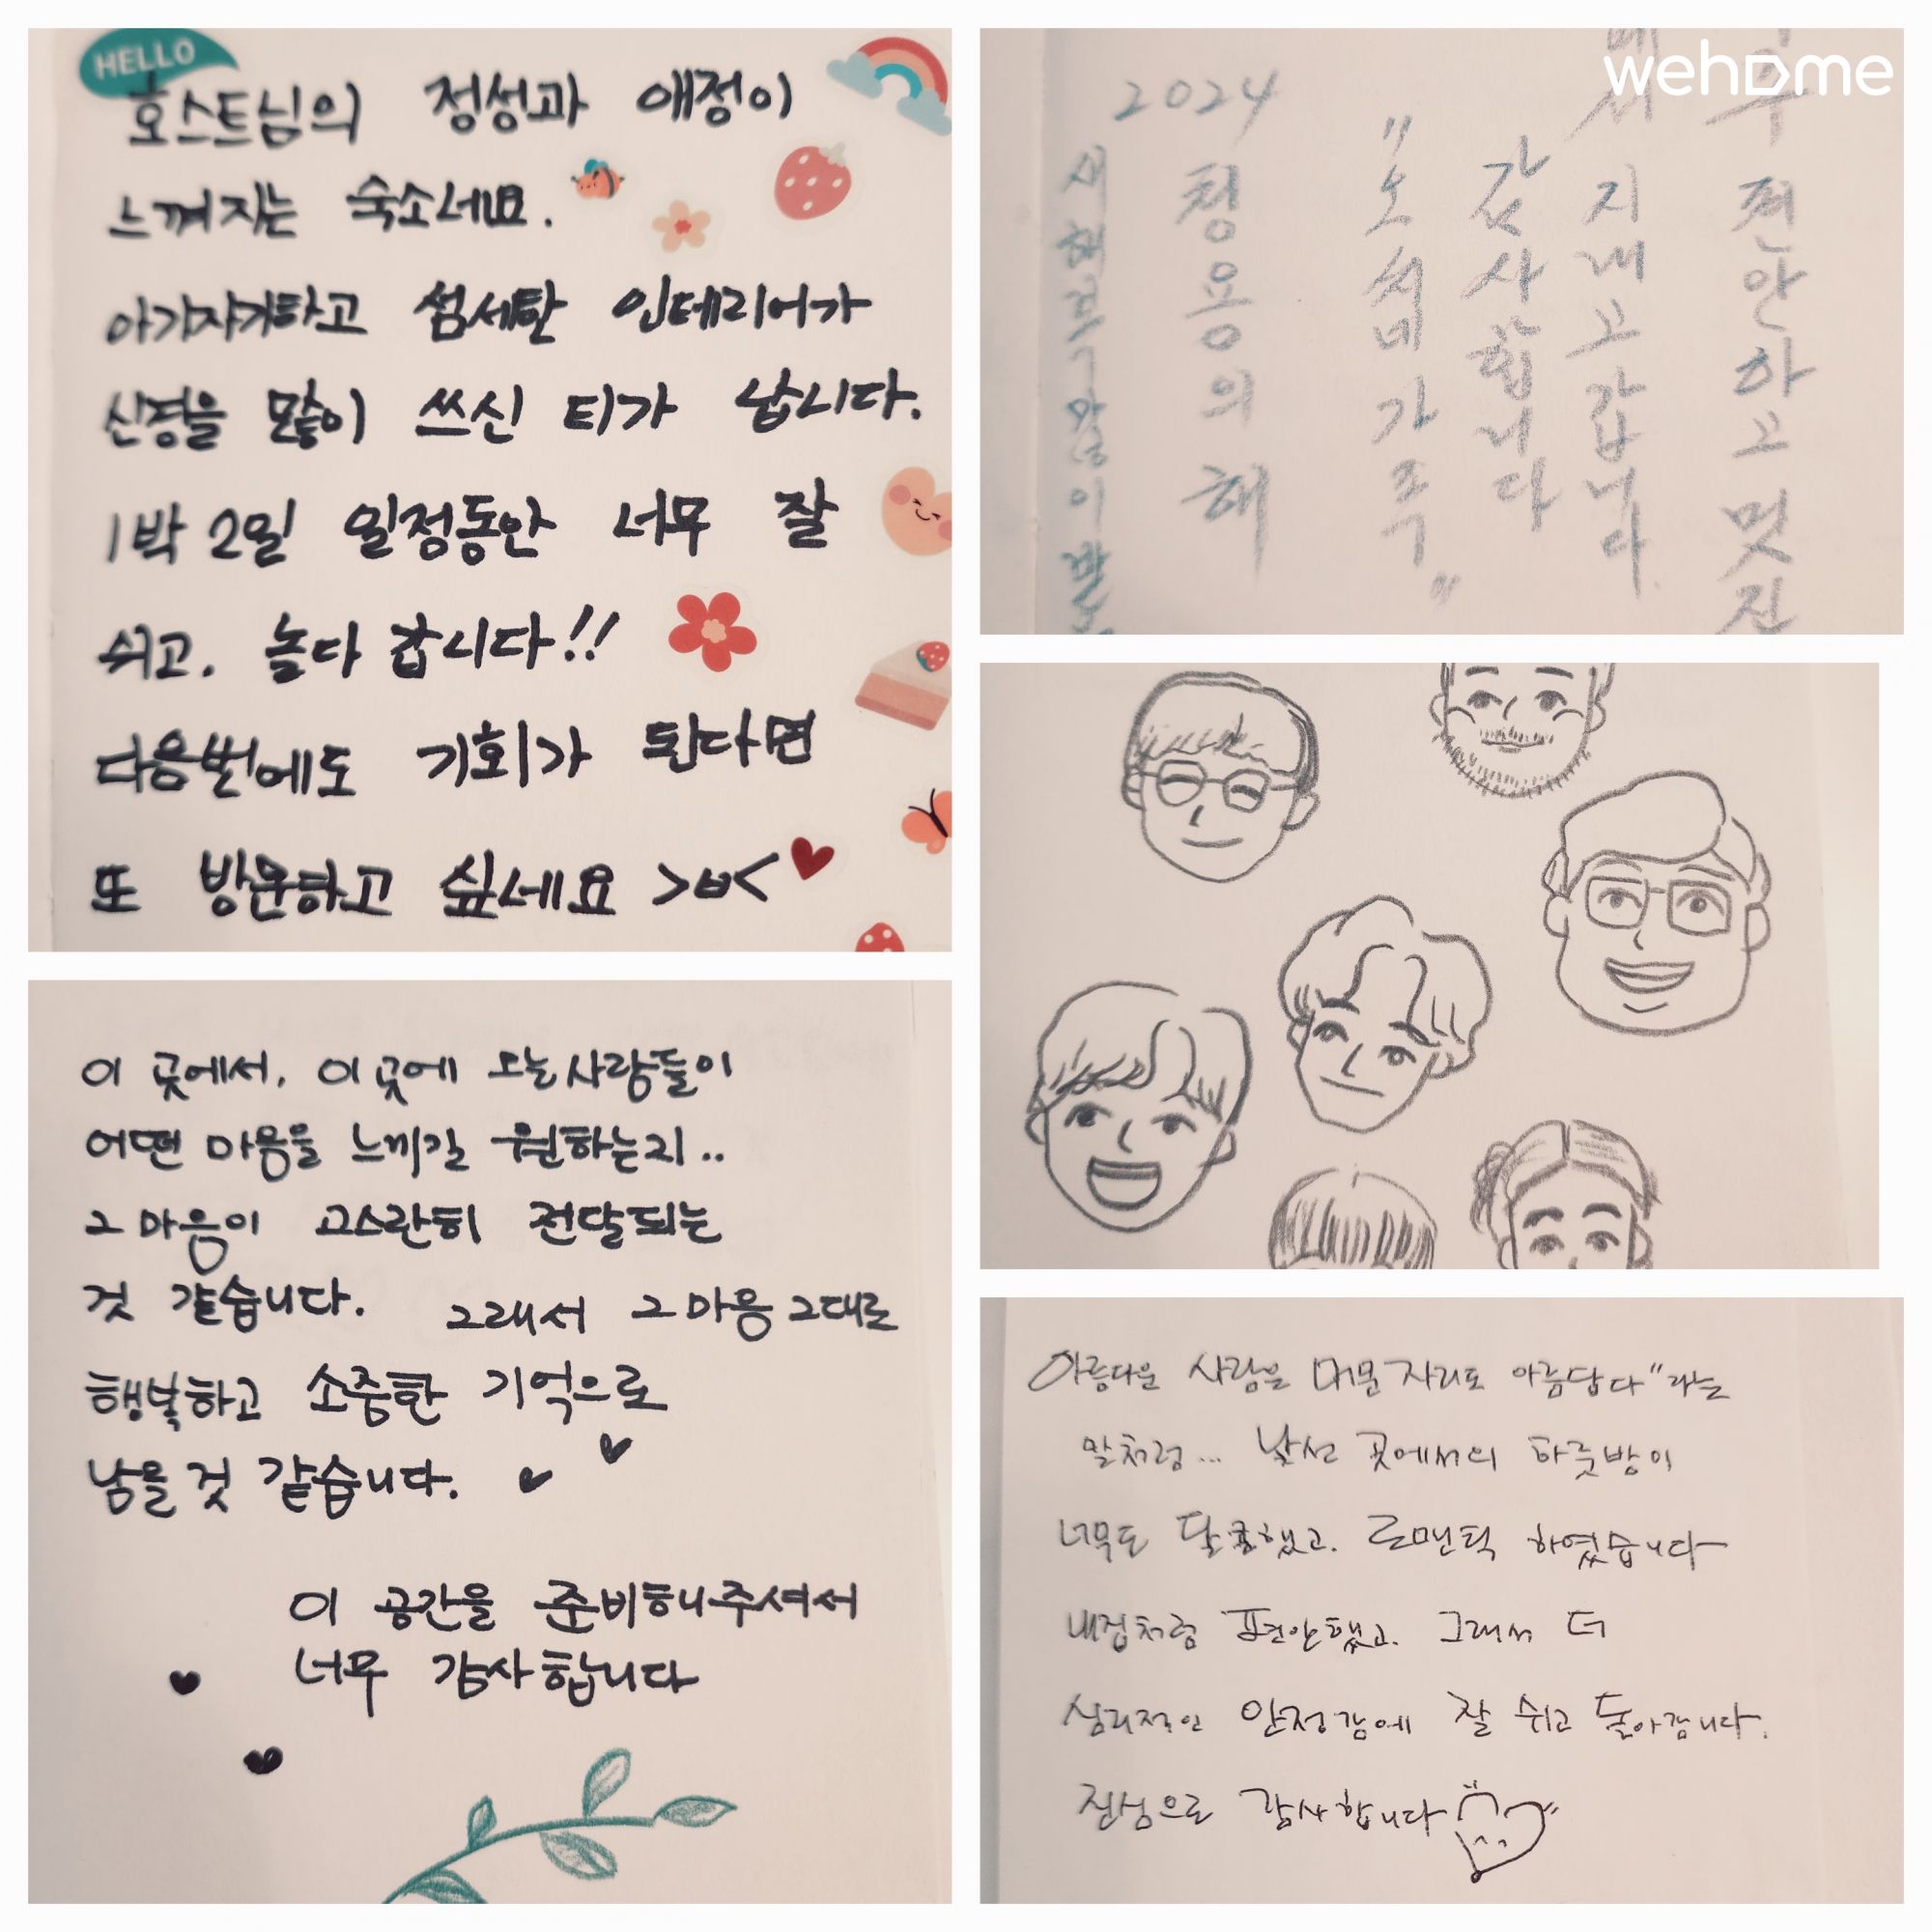 HELLO
호스트님의 정성과 애정이
느껴지는 숙소네요.
아기자기하고 섬세한 인테리어가
신경을 많이 쓰신 티가 납니다.
1박 2일 일정동안 너무 잘
쉬고. 놀다 갑니다!!
다음번에도 기회가 된다면
또 방문하고 싶네요 >ㅂ<
wehome
2024
편안하고 멋진
지내고 갑니다.
감사합니다
"노최네 가족"
청용의 해
이 곳에서, 이곳에 오는 사람들이
어떤 마음을 느끼길 원하는지..
그 마음이 고스란히 전달되는
것 같습니다. 그래서 그 마음 그대로
행복하고 소중한 기억으로
남을 것 같습니다.
이 공간을 준비해주셔서
너무 감사합니다
아름다운 사람은 머문 자리도 아름답다"라는
말처럼... 낯선 곳에서의 하룻밤이
너무도 달콤했고. 로맨틱 하였습니다
내집처럼 편안했고. 그래서 더
심리적인 안정감에 잘 쉬고 돌아갑니다.
진심으로 감사합니다